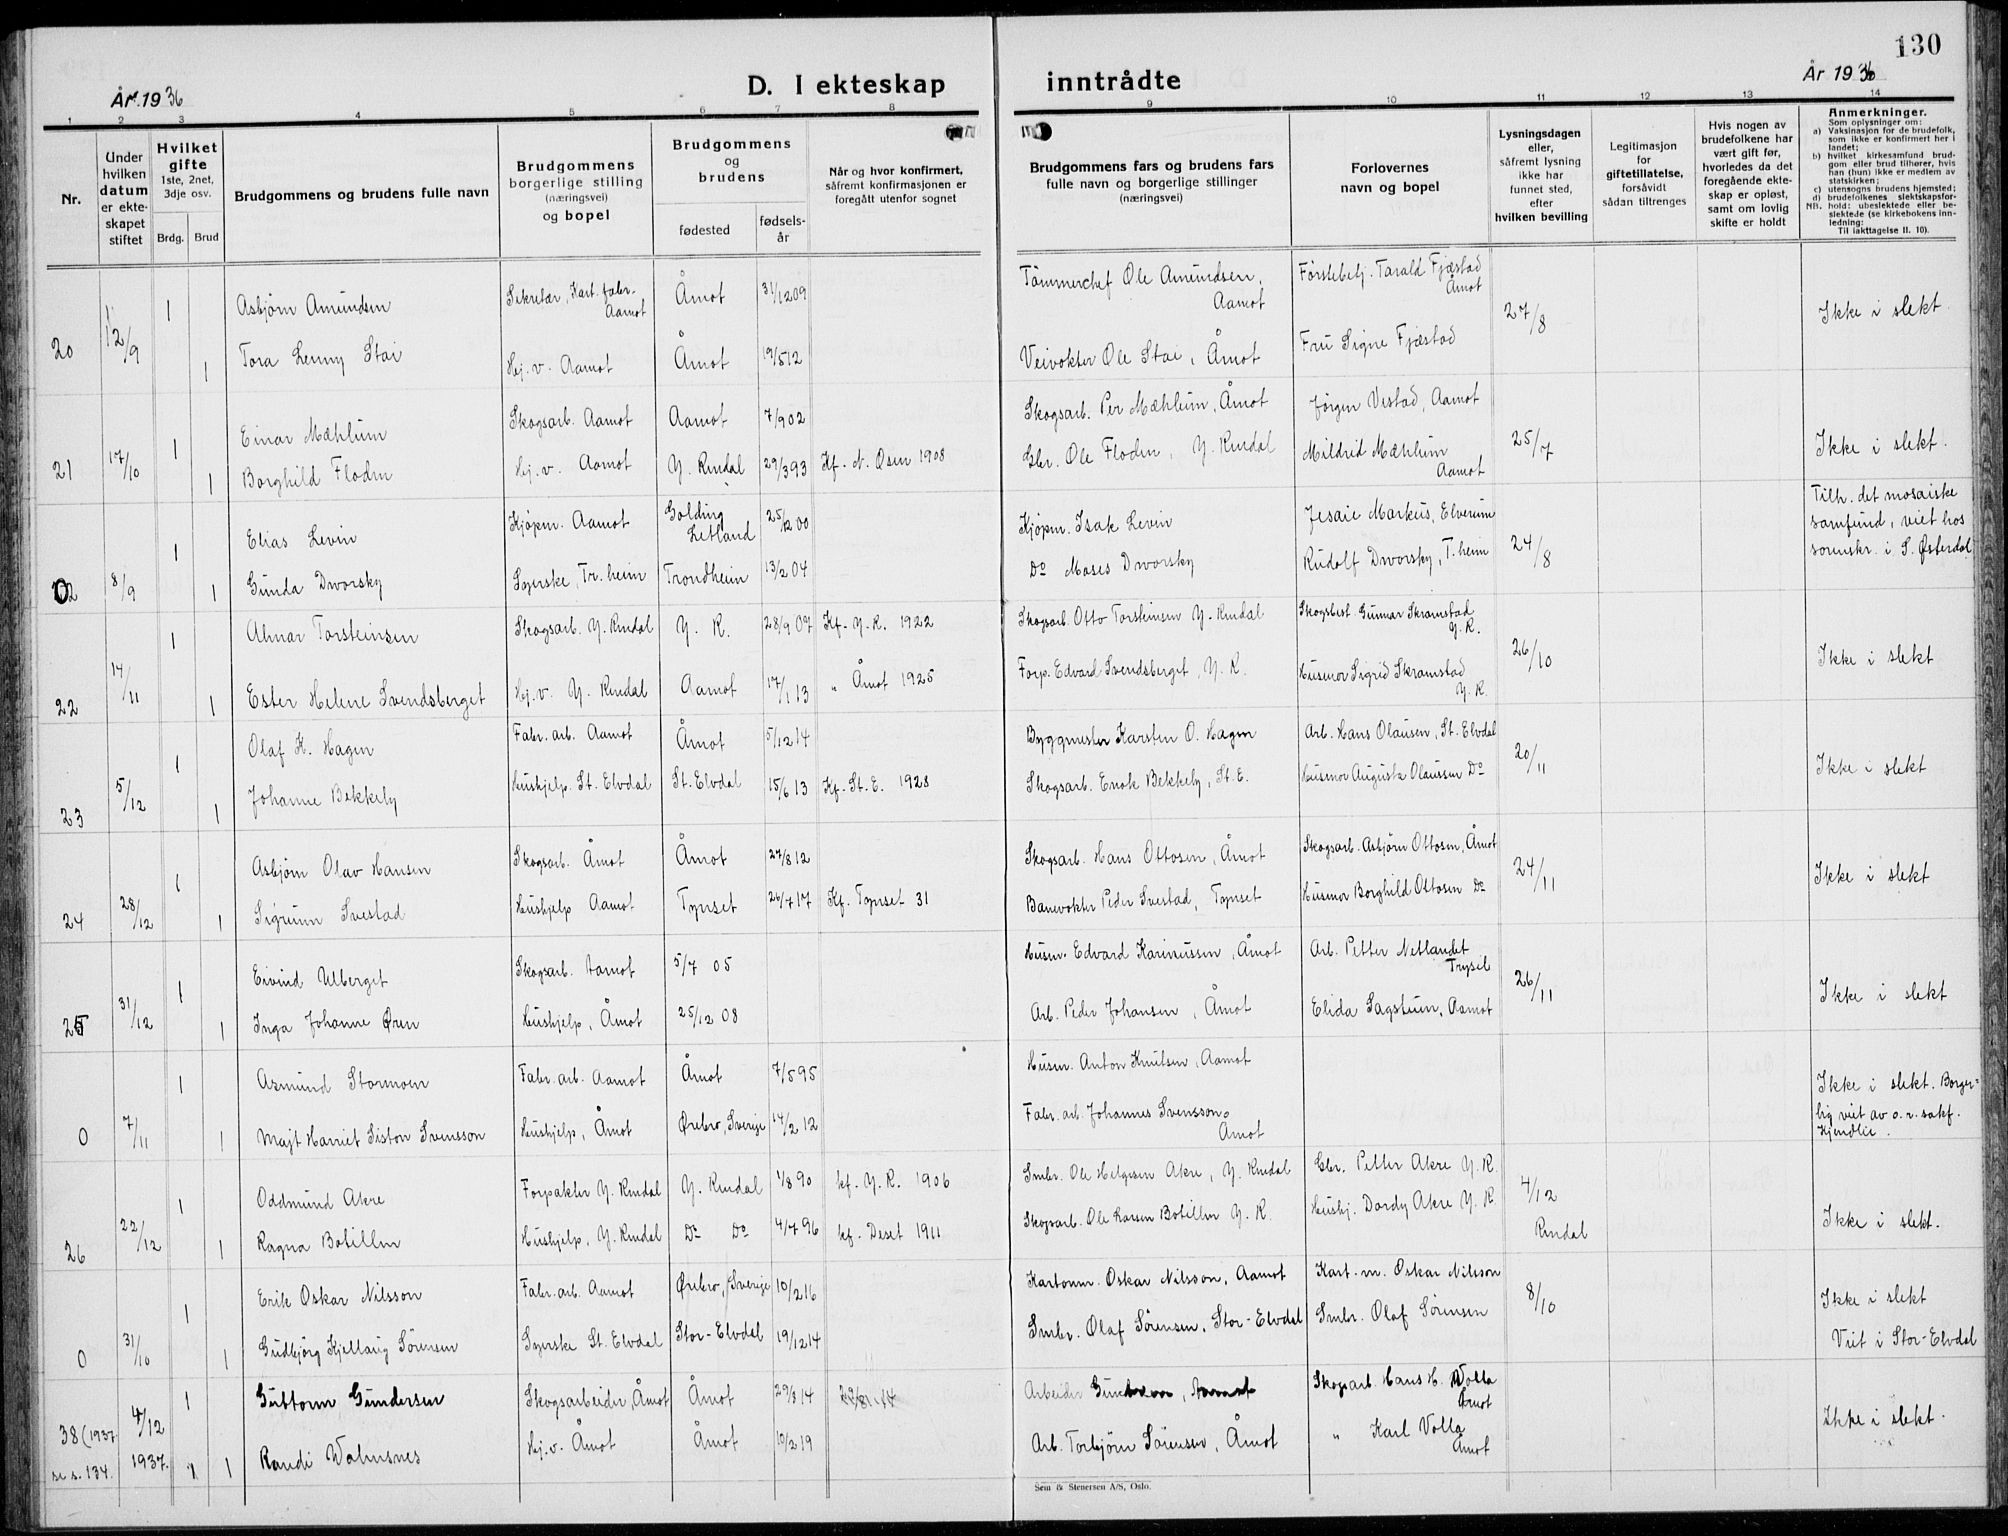 130
År 1936
D. I ekteskap inntrådte
År 1936
1 2 3 4 5 6 7 8 9 10 11 12 13 14
Nr.
Under hvilken datum er ekteskapet stiftet
Hvilket gifte
1ste, 2net, 3dje osv.
Brdg. Brud
Brudgommens og brudens fulle navn
Brudgommens borgerlige stilling (næringsvei) og bopel
Brudgommens og brudens
fødested
fødselsår
Når og hvor konfirmert, såfremt konfirmasjonen er foregått utenfor sognet
Brudgommens fars og brudens fars fulle navn og borgerlige stillinger (næringsvei)
Forlovernes navn og bopel
Lysningsdagen eller, såfremt lysning ikke har funnet sted, efter hvilken bevilling
Legitimasjon for giftetillatelse, forsåvidt sådan tiltrenges
Hvis nogen av brudefolkene har vært gift før, hvorledes da det foregående ekteskap er opløst, samt om lovlig skifte er holdt
Anmerkninger.
Som oplysninger om:
a) Vaksinasjon for de brudefolk, som ikke er konfirmert her i landet;
b) hvilket kirkesamfund brudgom eller brud tilhører, hvis han (hun) ikke er medlem av statskirken;
c) utensogns brudens hjemsted;
d) brudefolkenes slektskapsforhold: ubeslektede eller beslektede (se kirkebokens innledning:
NB. Til iakttagelse II. 10).
20 12/9 1 Asbjørn Amundsen Sekretær, Kart. fabr. Aamot Åmot 31/12 09 Tømmerchef Ole Amundsen, Aamot Førstebetj. Tarald Fjæstad Åmot 27/8 Ikke i slekt.
1 Tora Lenny Stai Hj.v. Aamot Åmot 19/5 12 Veivokter Ole Stai, Åmot Fru Signe Fjæstad
21 17/10 1 Einar Mæhlum Skogsarb. Aamot Aamot 7/9 02 Skogsarb. Per Mæhlum, Åmot Jørgen Vestad, Aamot 25/7 Ikke i slekt.
1 Borghild Floden Hj.v. Aamot Y. Rendal 29/3 93 Kf. N. Osen 1908 Gbr. Ole Floden, Y. Rendal Mildrid Mæhlum Aamot
02 8/9 1 Elias Levin Kjøpm. Aamot Golding Letland 25/12 00 Kjøpm. Isak Levin Jesaie Markus, Elverum 24/8 Tilh. det mosaiske samfund, viet hos sorenskr. i S. Østerdal
1 Gunda Dworsky Syerske, Tr.heim Trondheim 13/2 04 Do Moses Dworsky Rudolf Dworsky, T.heim
22 14/11 1 Almar Torsteinsen Skogsarb. Y. Rendal Y. R. 28/9 07 Kf. Y. R. 1922 Skogsarb. Otto Torsteinsen Y. Rendal Skogsbest. Gunnar Skramstad Y. R. 26/10 Ikke i slekt
1 Ester Helene Svendsberget Hj.v. Y. Rendal Aamot 17/1 13 " Åmot 1925 Forp. Edvard Svendsberget, Y. R. Husmor Sigrid Skramstad Y. R.
23 5/12 1 Olaf K. Hagen Fabr. arb. Aamot Åmot 5/12 14 Byggmester Karsten O. Hagen Arb. Hans Olausen, St. Elvdal 20/11 Ikke i slekt
1 Johanne Bekkely Hushjelp. St. Elvdal St. Elvdal 15/6 13 Kf. St. E. 1928 Skogsarb. Enok Bekkely, St. E. Husmor Augusta Olaussen Do
24 28/12 1 Asbjørn Olav Hansen Skogsarb. Åmot Åmot 27/8 12 Skogsarb. Hans Ottosen, Åmot Skogsarb. Asbjørn Ottosen, Åmot 24/11 Ikke i slekt
1 Sigrunn Svestad Hushjelp Aamot Tynset 26/7 17 Kf. Tynset 31 Banevokter Peder Svestad, Tynset Husmor Borghild Ottosen Do
25 31/12 1 Eivind Ulberget Skogsarb. Aamot 5/7 05 Husm. Edvard Karinussen, Åmot Arb. Petter Netlandet Trysil 26/11 Ikke i slekt
1 Inga Johanne Øren Hushjelp, Åmot 25/12 08 Arb. Peder Johansen, Åmot Elida Sagstuen, Aamot
0 7/11 1 Asmund Stormoen Fabr. arb. Aamot Åmot 7/5 95 Husm. Anton Knutsen, Aamot Ikke i slekt. Borgerlig viet av o.r. sakf. Kjendlie.
1 Majt Harriet Siston Svensson Hushjelp, Åmot Ørebro, Sverige 14/2 12 Fabr. arb. Johannes Svensson, Åmot
26 22/12 1 Oddmund Akre Forpakter Y. Rendal Y. Rendal 1/8 90 kf. Y. R. 1906 Smbr. Ole Helgesen Akre, Y. Rendal Gbr. Petter Akre Y. R. 4/12 Rendal Ikke i slekt.
1 Ragna Botillen Hushjelp, Y. Rendal Do Do 4/7 96 kf. Deset 1911 Skogsarb. Ole Larsen Botillen Y. R. Hushj. Dordy Akre Y. R
0 31/10 1 Erik Oskar Nilsson Fabr. arb. Aamot Ørebro, Sverige 10/2 16 Kartonm. Oskar Nilsson, Aamot Kart. m. Oskar Nilsson 8/10 Ikke i slekt
1 Gudbjørg Kjellaug Sørensen Syerske St. Elvdal Stor-Elvdal 19/12 14 Smbr. Olaf Sørensen, Stor-Elvdal Smbr. Olaf Sørensen Viet i Stor-Elvdal
38 (1937. se s. 134. 4/12 1937. 1 Guttorm Gundersen Skogsarbeider, Åmot Åmot 29/8 14 Arbeider Skogsarb. Hans H. Volla Åmot Ikke i slekt.
1 Randi Hj.v. Åmot Åmot 10/2 19 Arb. Torbjørn Sørensen, Åmot " Karl Volla Åmot
Sem & Stenersen A/S, Oslo.